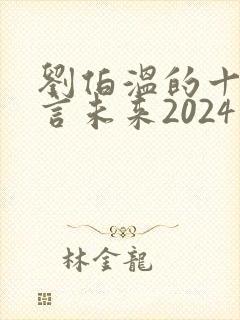 劉伯溫的十
言未来2024
林金龍